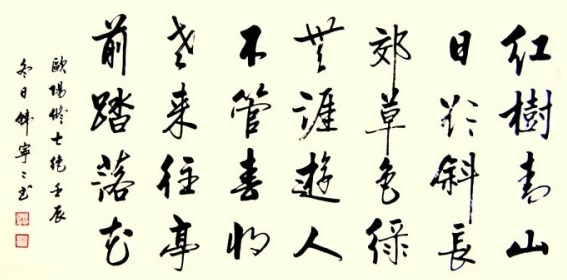 红樹青山
日欲斜長
郊草色绿
無涯遊人
不管春将
老来往亭
前踏落花
歐陽修七绝壬辰
冬日寧〻书